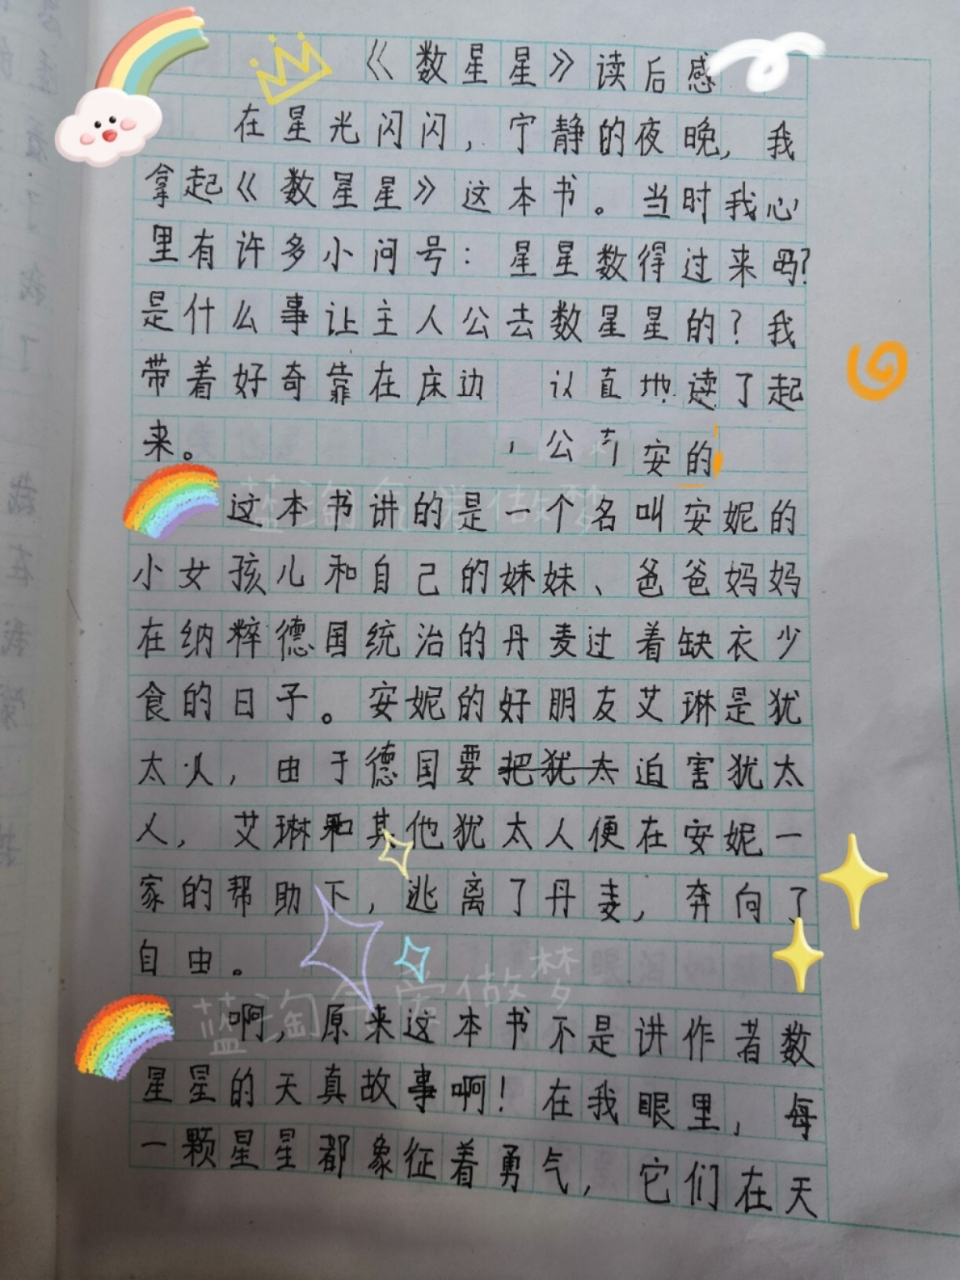 《数星星》读后感
在星光闪闪，宁静的夜晚，我
拿起《数星星》这本书。当时我心
里有许多小问号：星星数得过来吗？
是什么事让主人公去数星星的？我
带着好奇靠在床边 认真地读了起
来。 公 安的
这本书讲的是一个名叫安妮的
小女孩儿和自己的妹妹、爸爸妈妈
在纳粹德国统治的丹麦过着缺衣少
食的日子。安妮的好朋友艾琳是犹
太人，由于德国要把犹太迫害犹太
人，艾琳和其他犹太人便在安妮一
家的帮助下，逃离了丹麦，奔向了
自由。
啊，原来这本书不是讲作者数
星星的天真故事啊！在我眼里，每
一颗星星都象征着勇气，它们在天